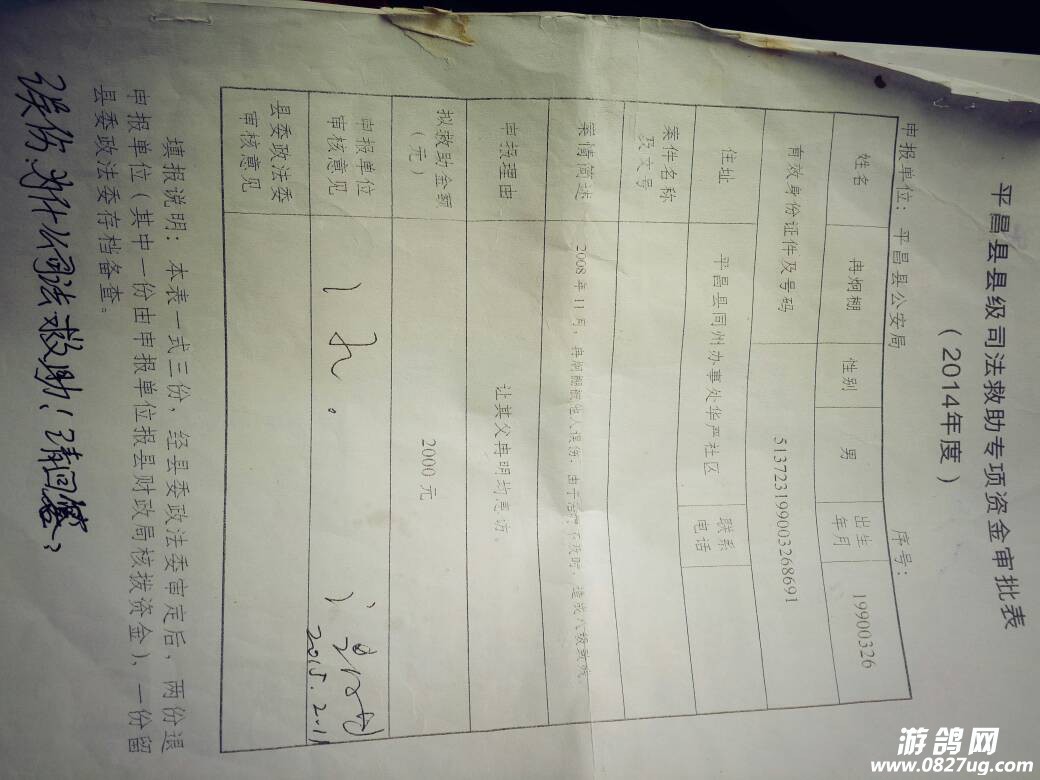 平昌县县级司法救助专项资金审批表
（2014年度）
申报单位：平昌县公安局 序号：
姓名 冉炯棚 性别 男 出生年月 19900326
有效身份证件及号码 513723199003268691
住址 平昌县同州办事处华严社区 联系电话
案件名称及文号
案情简述 2008年11月，冉炯棚被他人误伤，由于治疗不及时，造成八级致残。
申报理由 让其父冉明灼息访。
拟救助金额（元） 2000元
申报单位审核意见
2015.2.11
县委政法委审核意见
填报说明：本表一式三份，经县委政法委审定后，两份退
申报单位（其中一份由申报单位报县财政局核拨资金），一份留
县委政法委存档备查。
误伤为什么司法救助！请回答？
游鸽网
www.0827ug.com